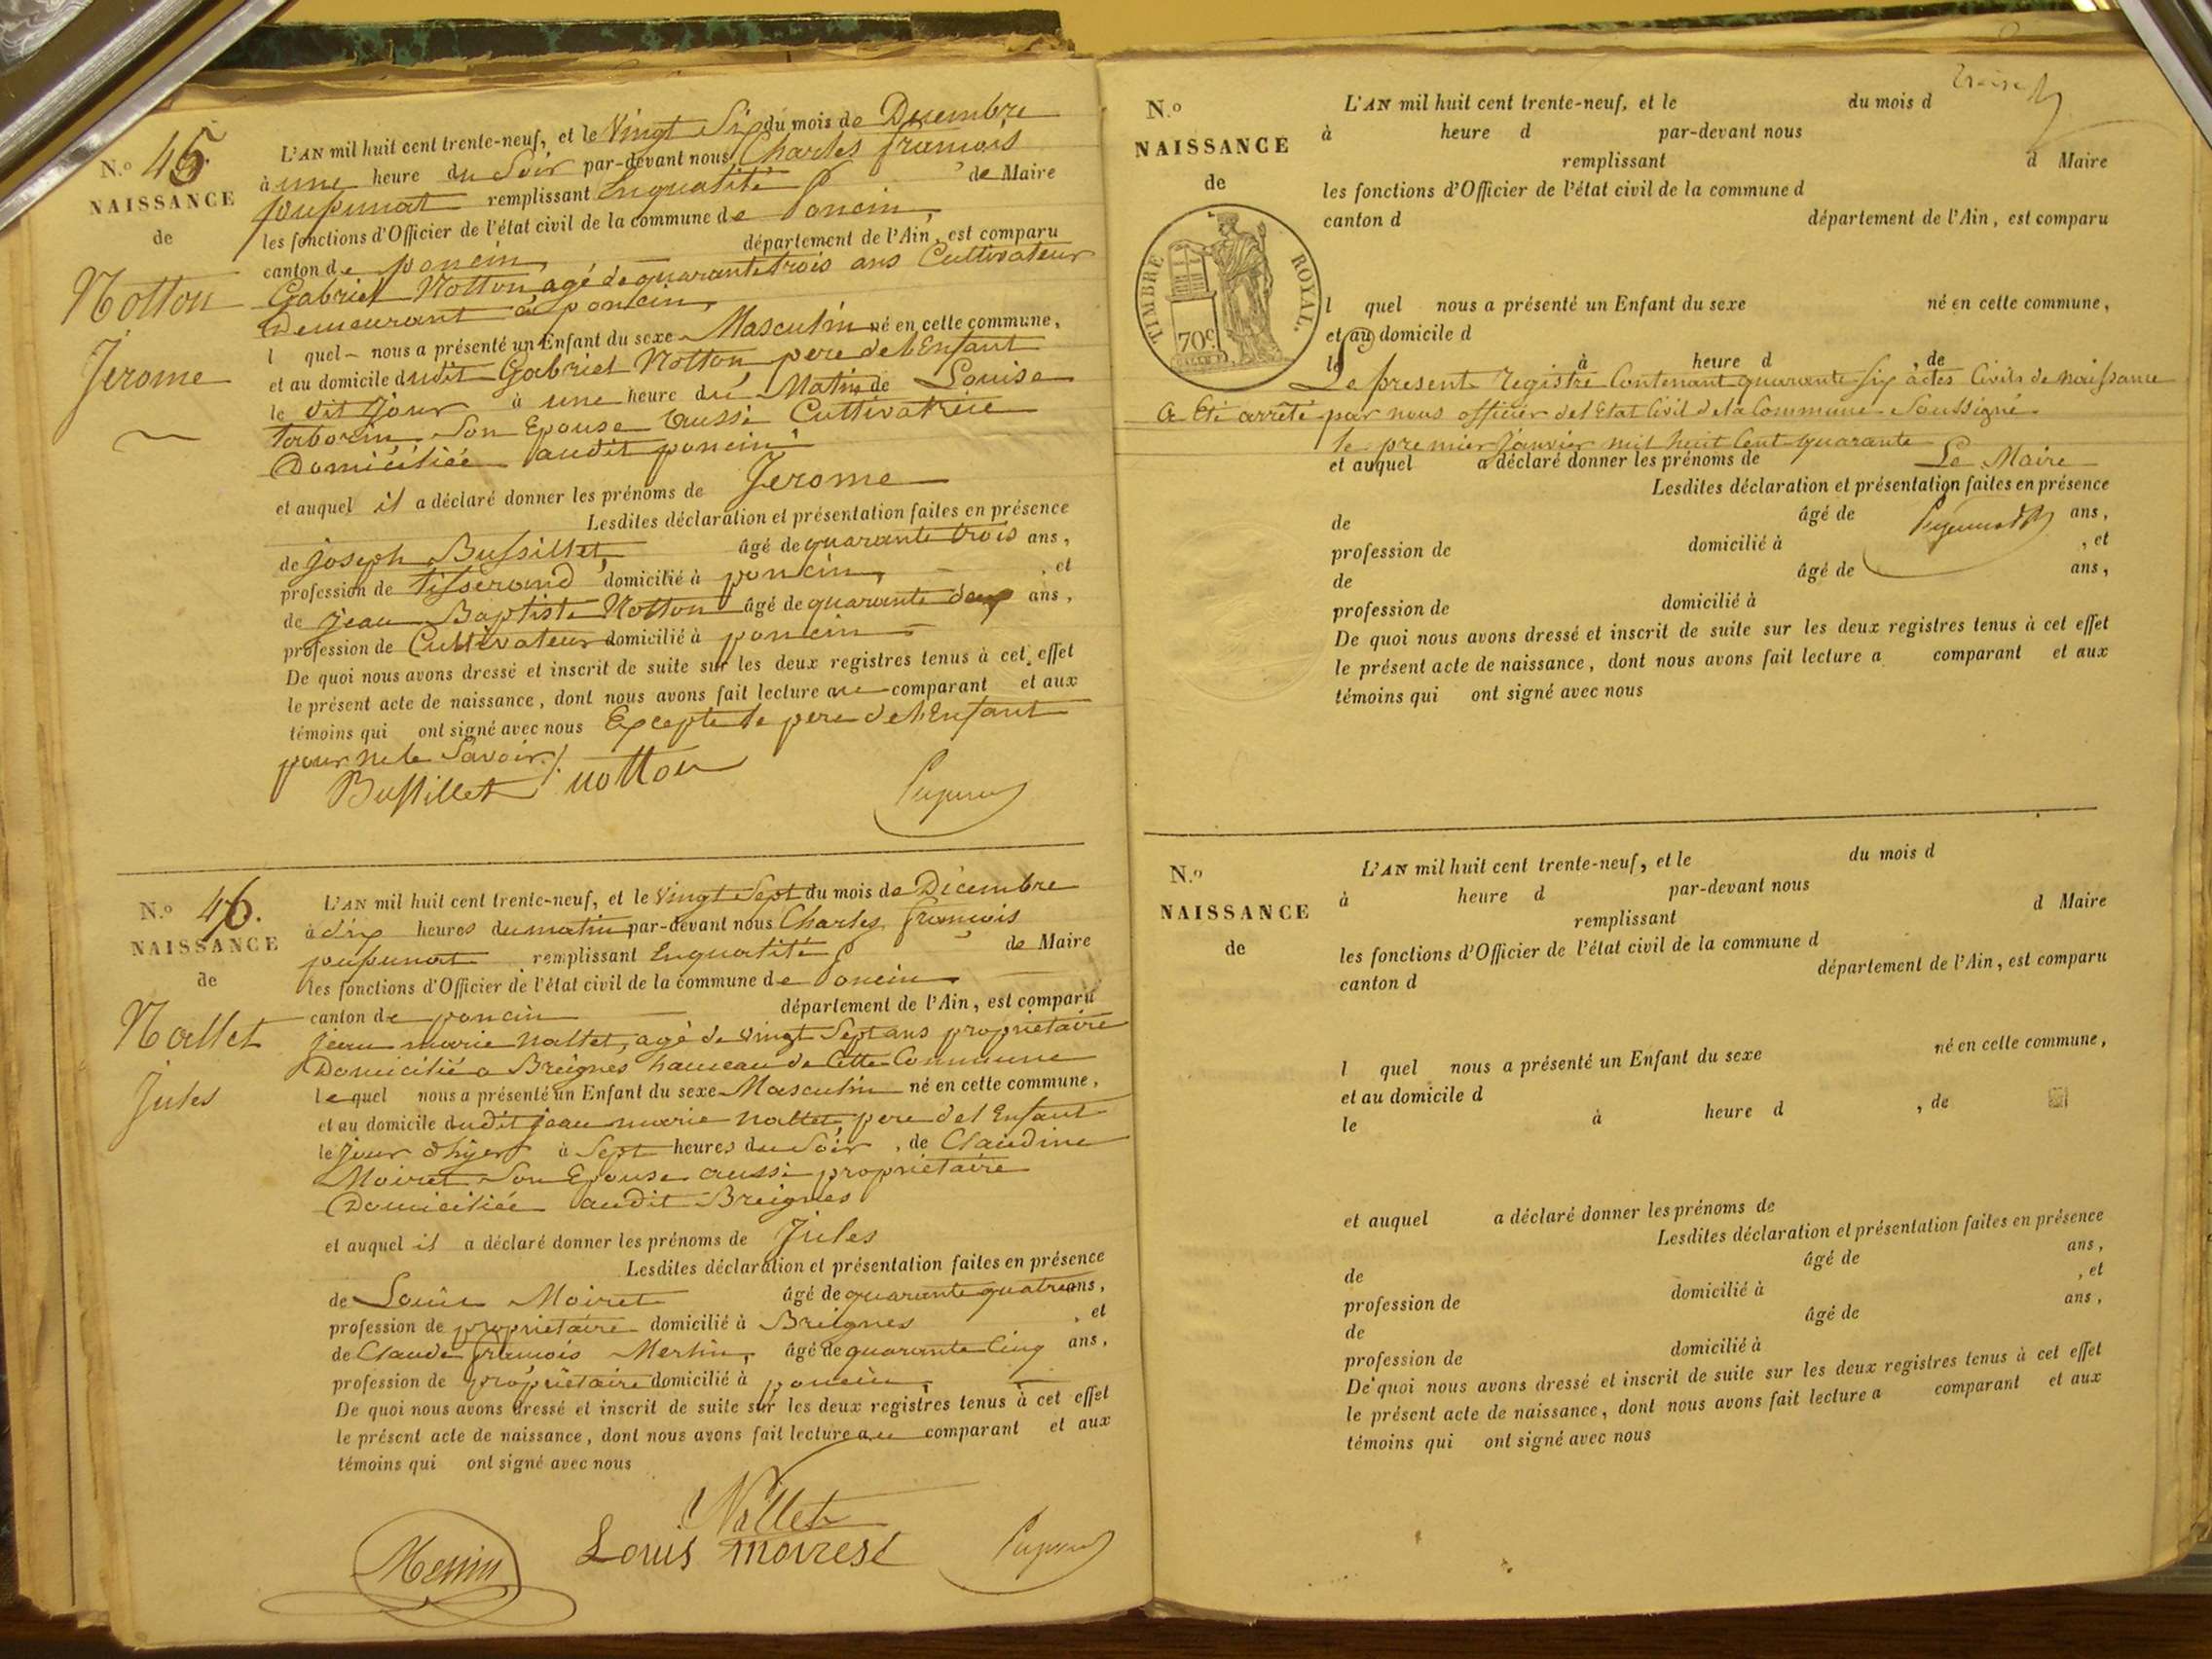 N.º 45.
NAISSANCE
de
Notton
Jerome
L'AN mil huit cent trente-neuf, et le Vingt Six du mois de Decembre
à une heure du Soir par-devant nous Charles françois
pupunat remplissant Enqualité de Maire
les fonctions d'Officier de l'état civil de la commune de Poncin,
canton de poncin, département de l'Ain, est comparu
Gabriel Notton agé de quarante trois ans Cultivateur
Demeurant à poncin,
l quel nous a présenté un Enfant du sexe Masculin né en cette commune,
et au domicile dudit Gabriel Notton, pere de l'Enfant
le dit Jour à une heure du Matin de Louise
Son Epouse Aussi Cultivatrice
Domiciliée audit poncin
et auquel il a déclaré donner les prénoms de Jerome
Lesdites déclaration et présentation faites en présence
de Joseph Bussillet, âgé de quarante trois ans,
profession de tisserand domicilié à poncin, et
de Jean Baptiste Notton âgé de quarante deux ans,
profession de Cultivateur domicilié à poncin
De quoi nous avons dressé et inscrit de suite sur les deux registres tenus à cet effet
le présent acte de naissance, dont nous avons fait lecture au comparant et aux
témoins qui ont signé avec nous Excepté le pere de l'Enfant
pour ne le Savoir.
Bussillet notton
N.º 46.
NAISSANCE
de
Nallet
Jules
L'AN mil huit cent trente-neuf, et le Vingt Sept du mois de Décembre
à dix heures du matin par-devant nous Charles françois
pupunat remplissant Enqualité de Maire
les fonctions d'Officier de l'état civil de la commune de Poncin
canton de poncin département de l'Ain, est comparu
jean marie nallet, agé de vingt Sept ans propriétaire
Domicilié a Breignes hameau de Cette Commune
le quel nous a présenté un Enfant du sexe Masculin né en cette commune,
et au domicile dudit jean marie nallet, pere del Enfant
le jour d'hyer à Sept heures du Soir, de Claudine
Moiret Son Epouse aussi propriétaire
Domiciliée audit Breignes
et auquel il a déclaré donner les prénoms de Jules
Lesdites déclaration et présentation faites en présence
de Louis Moiret âgé de quarante quatre ans,
profession de propriétaire domicilié à Breignes, et
de Claude françois Merlin, âgé de quarante Cinq ans,
profession de propriétaire domicilié à poncin,
De quoi nous avons dressé et inscrit de suite sur les deux registres tenus à cet effet
le présent acte de naissance, dont nous avons fait lecture au comparant et aux
témoins qui ont signé avec nous
Nallet
Louis moirest
N.º
NAISSANCE
de
TIMBRE ROYAL.
70c
L'AN mil huit cent trente-neuf, et le du mois d
à heure d par-devant nous
remplissant d Maire
les fonctions d'Officier de l'état civil de la commune d
canton d département de l'Ain, est comparu
l quel nous a présenté un Enfant du sexe né en cette commune,
et au domicile d
le à heure d , de
Le present Registre Contenant quarante Six actes Civils de naissance
a Eté arrêté par nous officier del Etat Civil de la Commune Soussigné
le premier Janvier mil huit Cent quarante
et auquel a déclaré donner les prénoms de Le Maire
Lesdites déclaration et présentation faites en présence
de âgé de ans,
profession de domicilié à , et
de âgé de ans,
profession de domicilié à
De quoi nous avons dressé et inscrit de suite sur les deux registres tenus à cet effet
le présent acte de naissance, dont nous avons fait lecture a comparant et aux
témoins qui ont signé avec nous
N.º
NAISSANCE
de
L'AN mil huit cent trente-neuf, et le du mois d
à heure d par-devant nous
remplissant d Maire
les fonctions d'Officier de l'état civil de la commune d
canton d département de l'Ain, est comparu
l quel nous a présenté un Enfant du sexe né en cette commune,
et au domicile d
le à heure d , de
et auquel a déclaré donner les prénoms de
Lesdites déclaration et présentation faites en présence
de âgé de ans,
profession de domicilié à , et
de âgé de ans,
profession de domicilié à
De quoi nous avons dressé et inscrit de suite sur les deux registres tenus à cet effet
le présent acte de naissance, dont nous avons fait lecture a comparant et aux
témoins qui ont signé avec nous